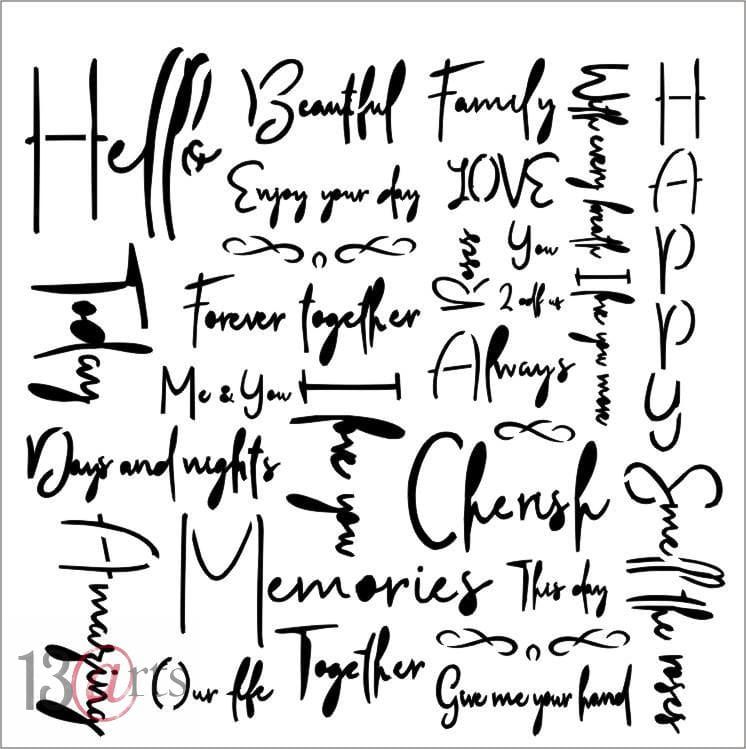 Hello
Beautiful
Family
With every breath I love you more
HAPPy
Enjoy your day
LOVE
You
Roses
2 of us
Today
Forever together
Always
Me & You
I love you
Days and nights
Cherish
Smell the roses
Amazing
Memories
This day
Together
Our life
Give me your hand
13@rts